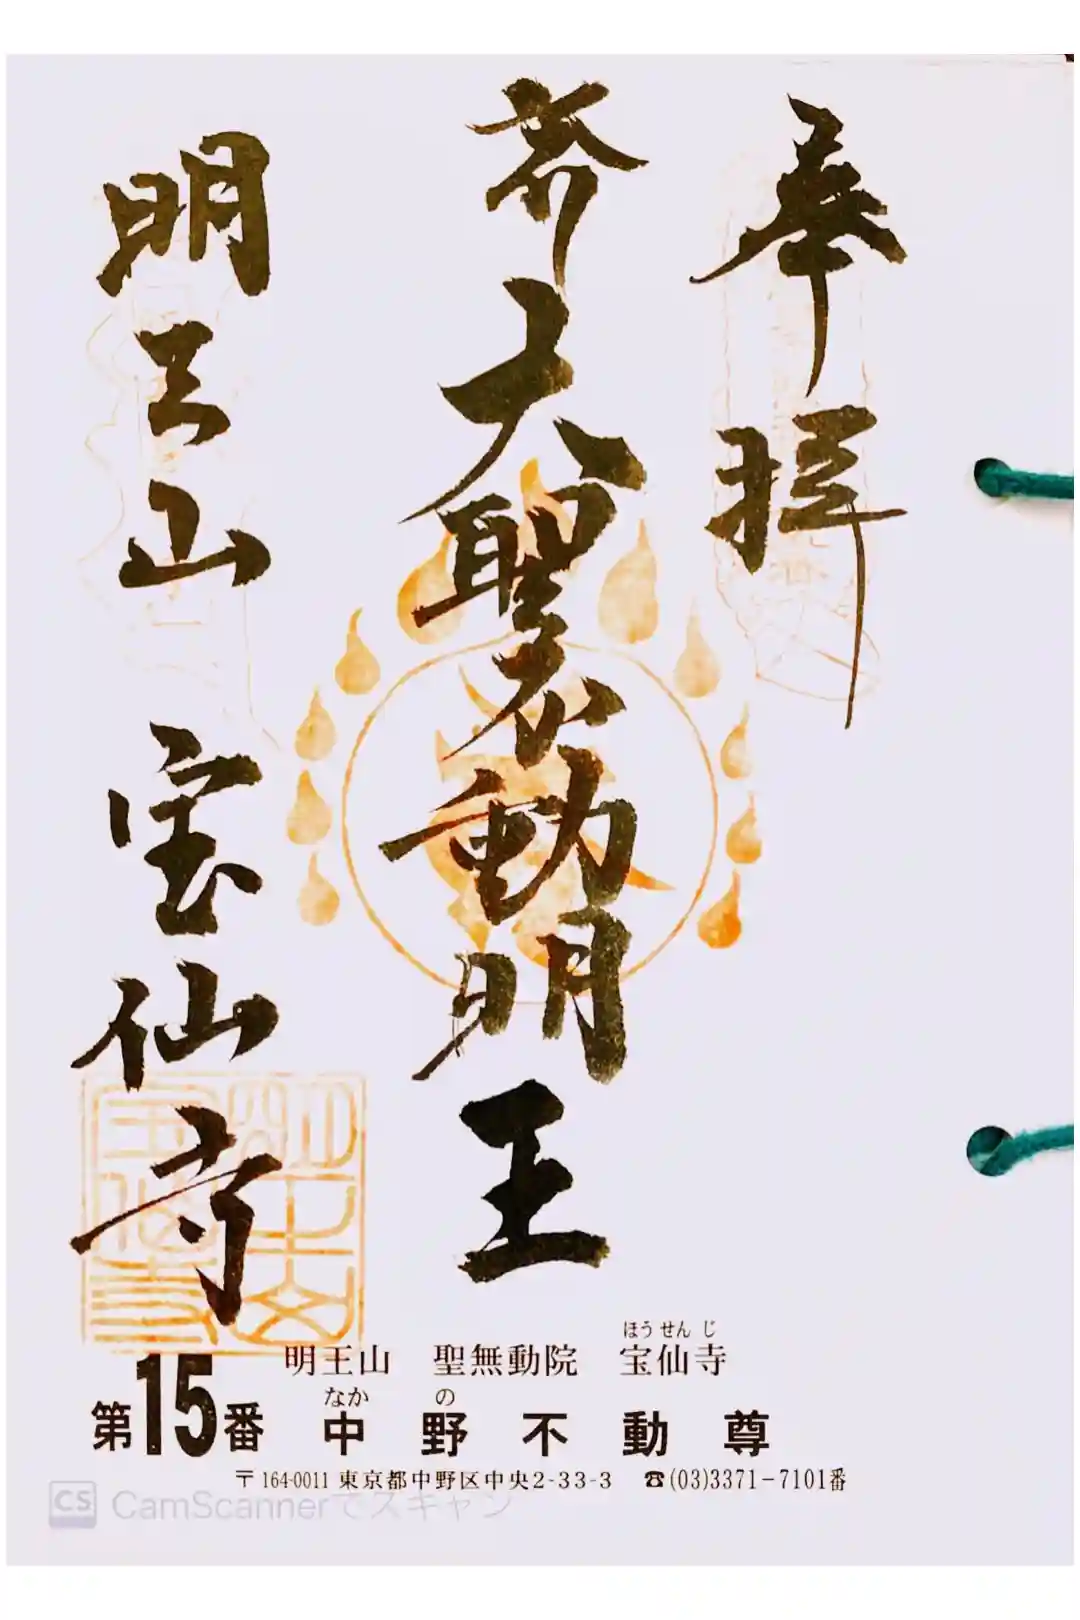 奉拝
大聖不動明王
明王山 宝仙寺
明王山 聖無動院 宝仙寺
ほうせんじ
第15番 中野不動尊
なかの
〒164-0011 東京都中野区中央2-33-3 ☎(03)3371-7101番
CS CamScannerでスキャン